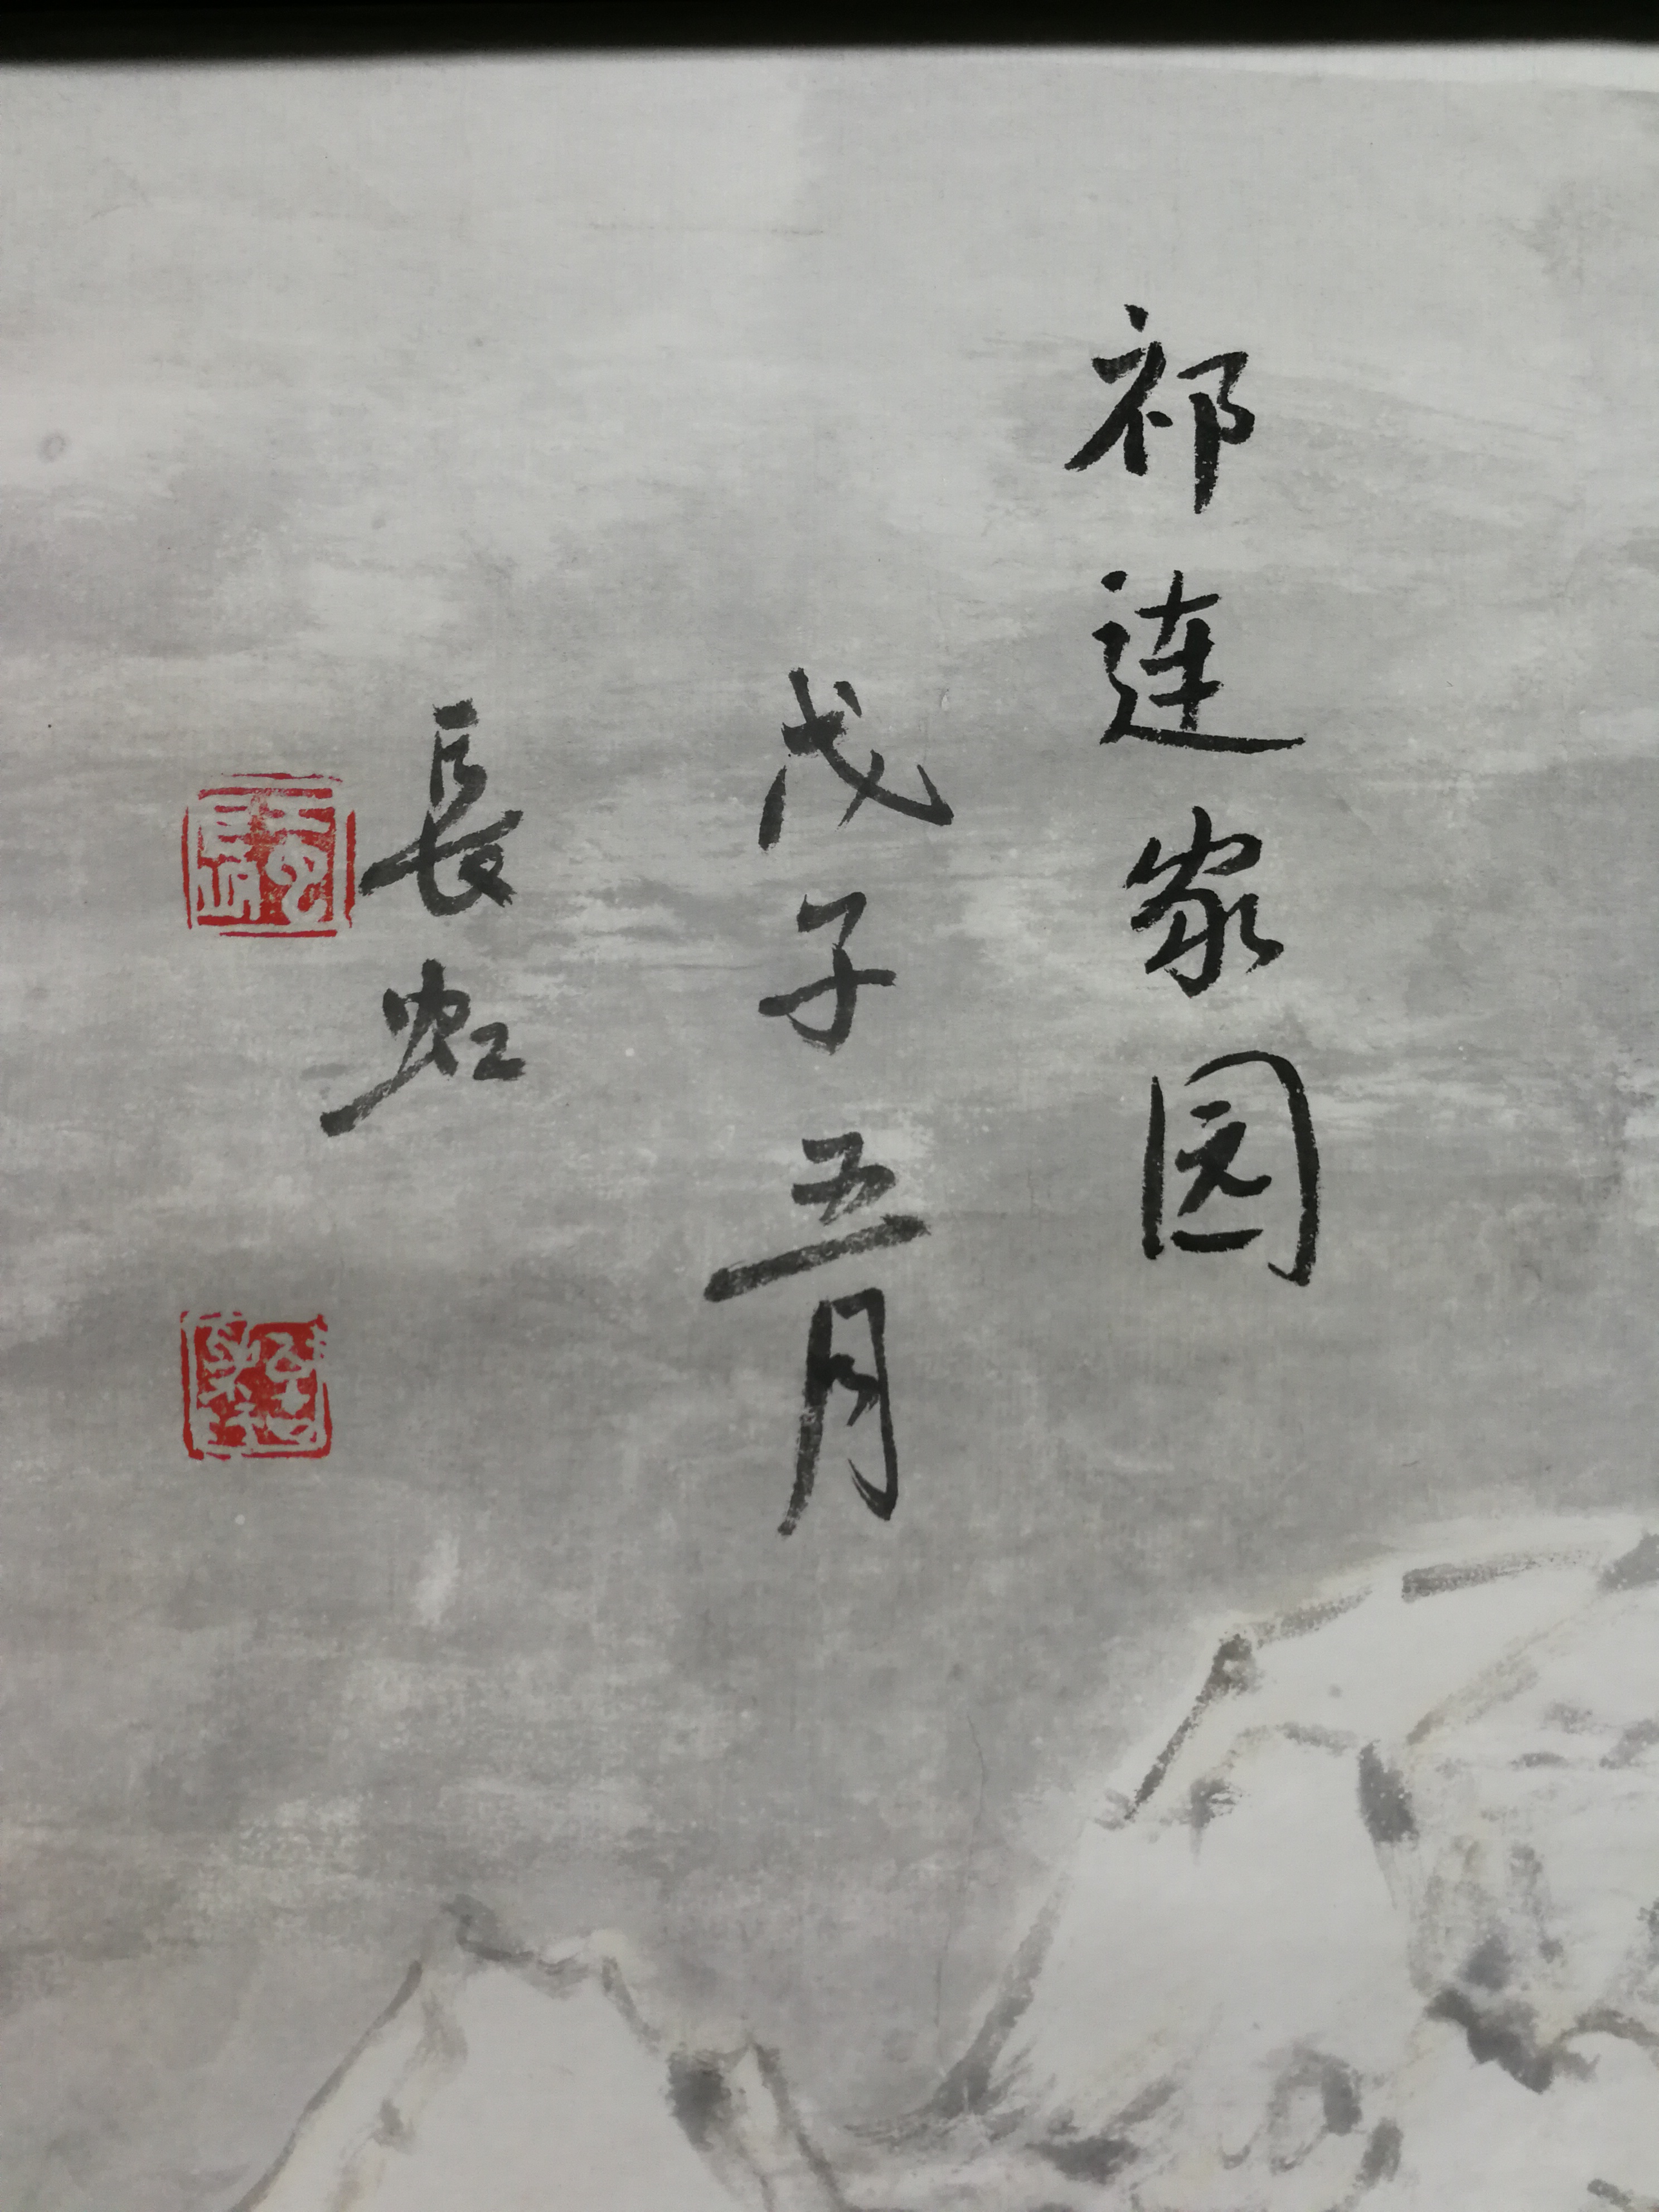 祁连家园
戊子五月
長虹